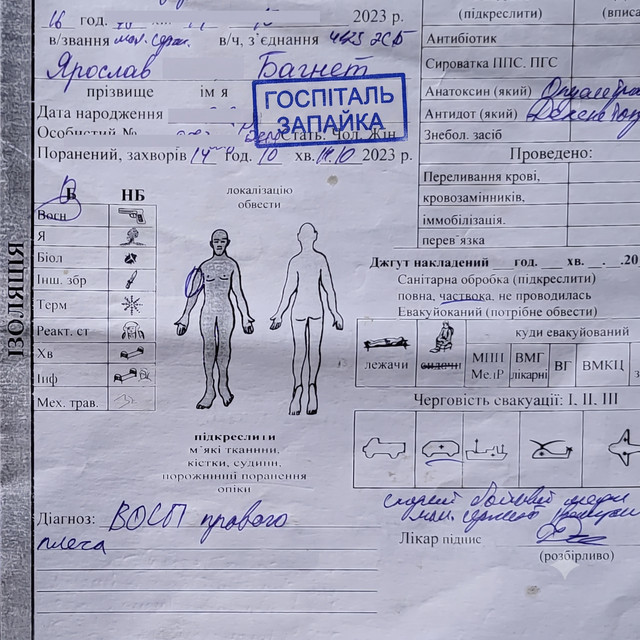 16 год. 2023 р.
в/звання мол. серж. в/ч, з`єднання
Ярослав Багнет
прізвище ім`я
ГОСПІТАЛЬ
ЗАПАЙКА
Дата народження
Особистий № Стать: Чол. Жін
Поранений, захворів 14 год. 10 хв. 2023 р.
(підкреслити) (вписа
Антибіотик
Сироватка ППС. ПГС
Анатоксин (який)
Антидот (який)
Знебол. засіб
Проведено:
Переливання крові,
кровозамінників.
іммобілізація.
перев`язка
Джгут накладений год. хв. . .20
Санітарна обробка (підкреслити)
повна, часткова, не проводилась
Евакуйований (потрібне обвести)
куди евакуйований
лежачи сидячи
МПП Ме.дР
ВМГ лікарні
ВГ
ВМКЦ
Черговість евакуації: I, II. III
ІЗОЛЯЦІЯ
Б НБ
Вогн
Я
Біол
Інш. збр
Терм
Реакт. ст
Хв
Інф
Мех. трав.
локалізацію
обвести
підкреслити
м`які тканини,
кістки, судини,
порожнинні поранення
опіки
Діагноз: ВОСП правого
плеча
Лікар підпис
(розбірливо)